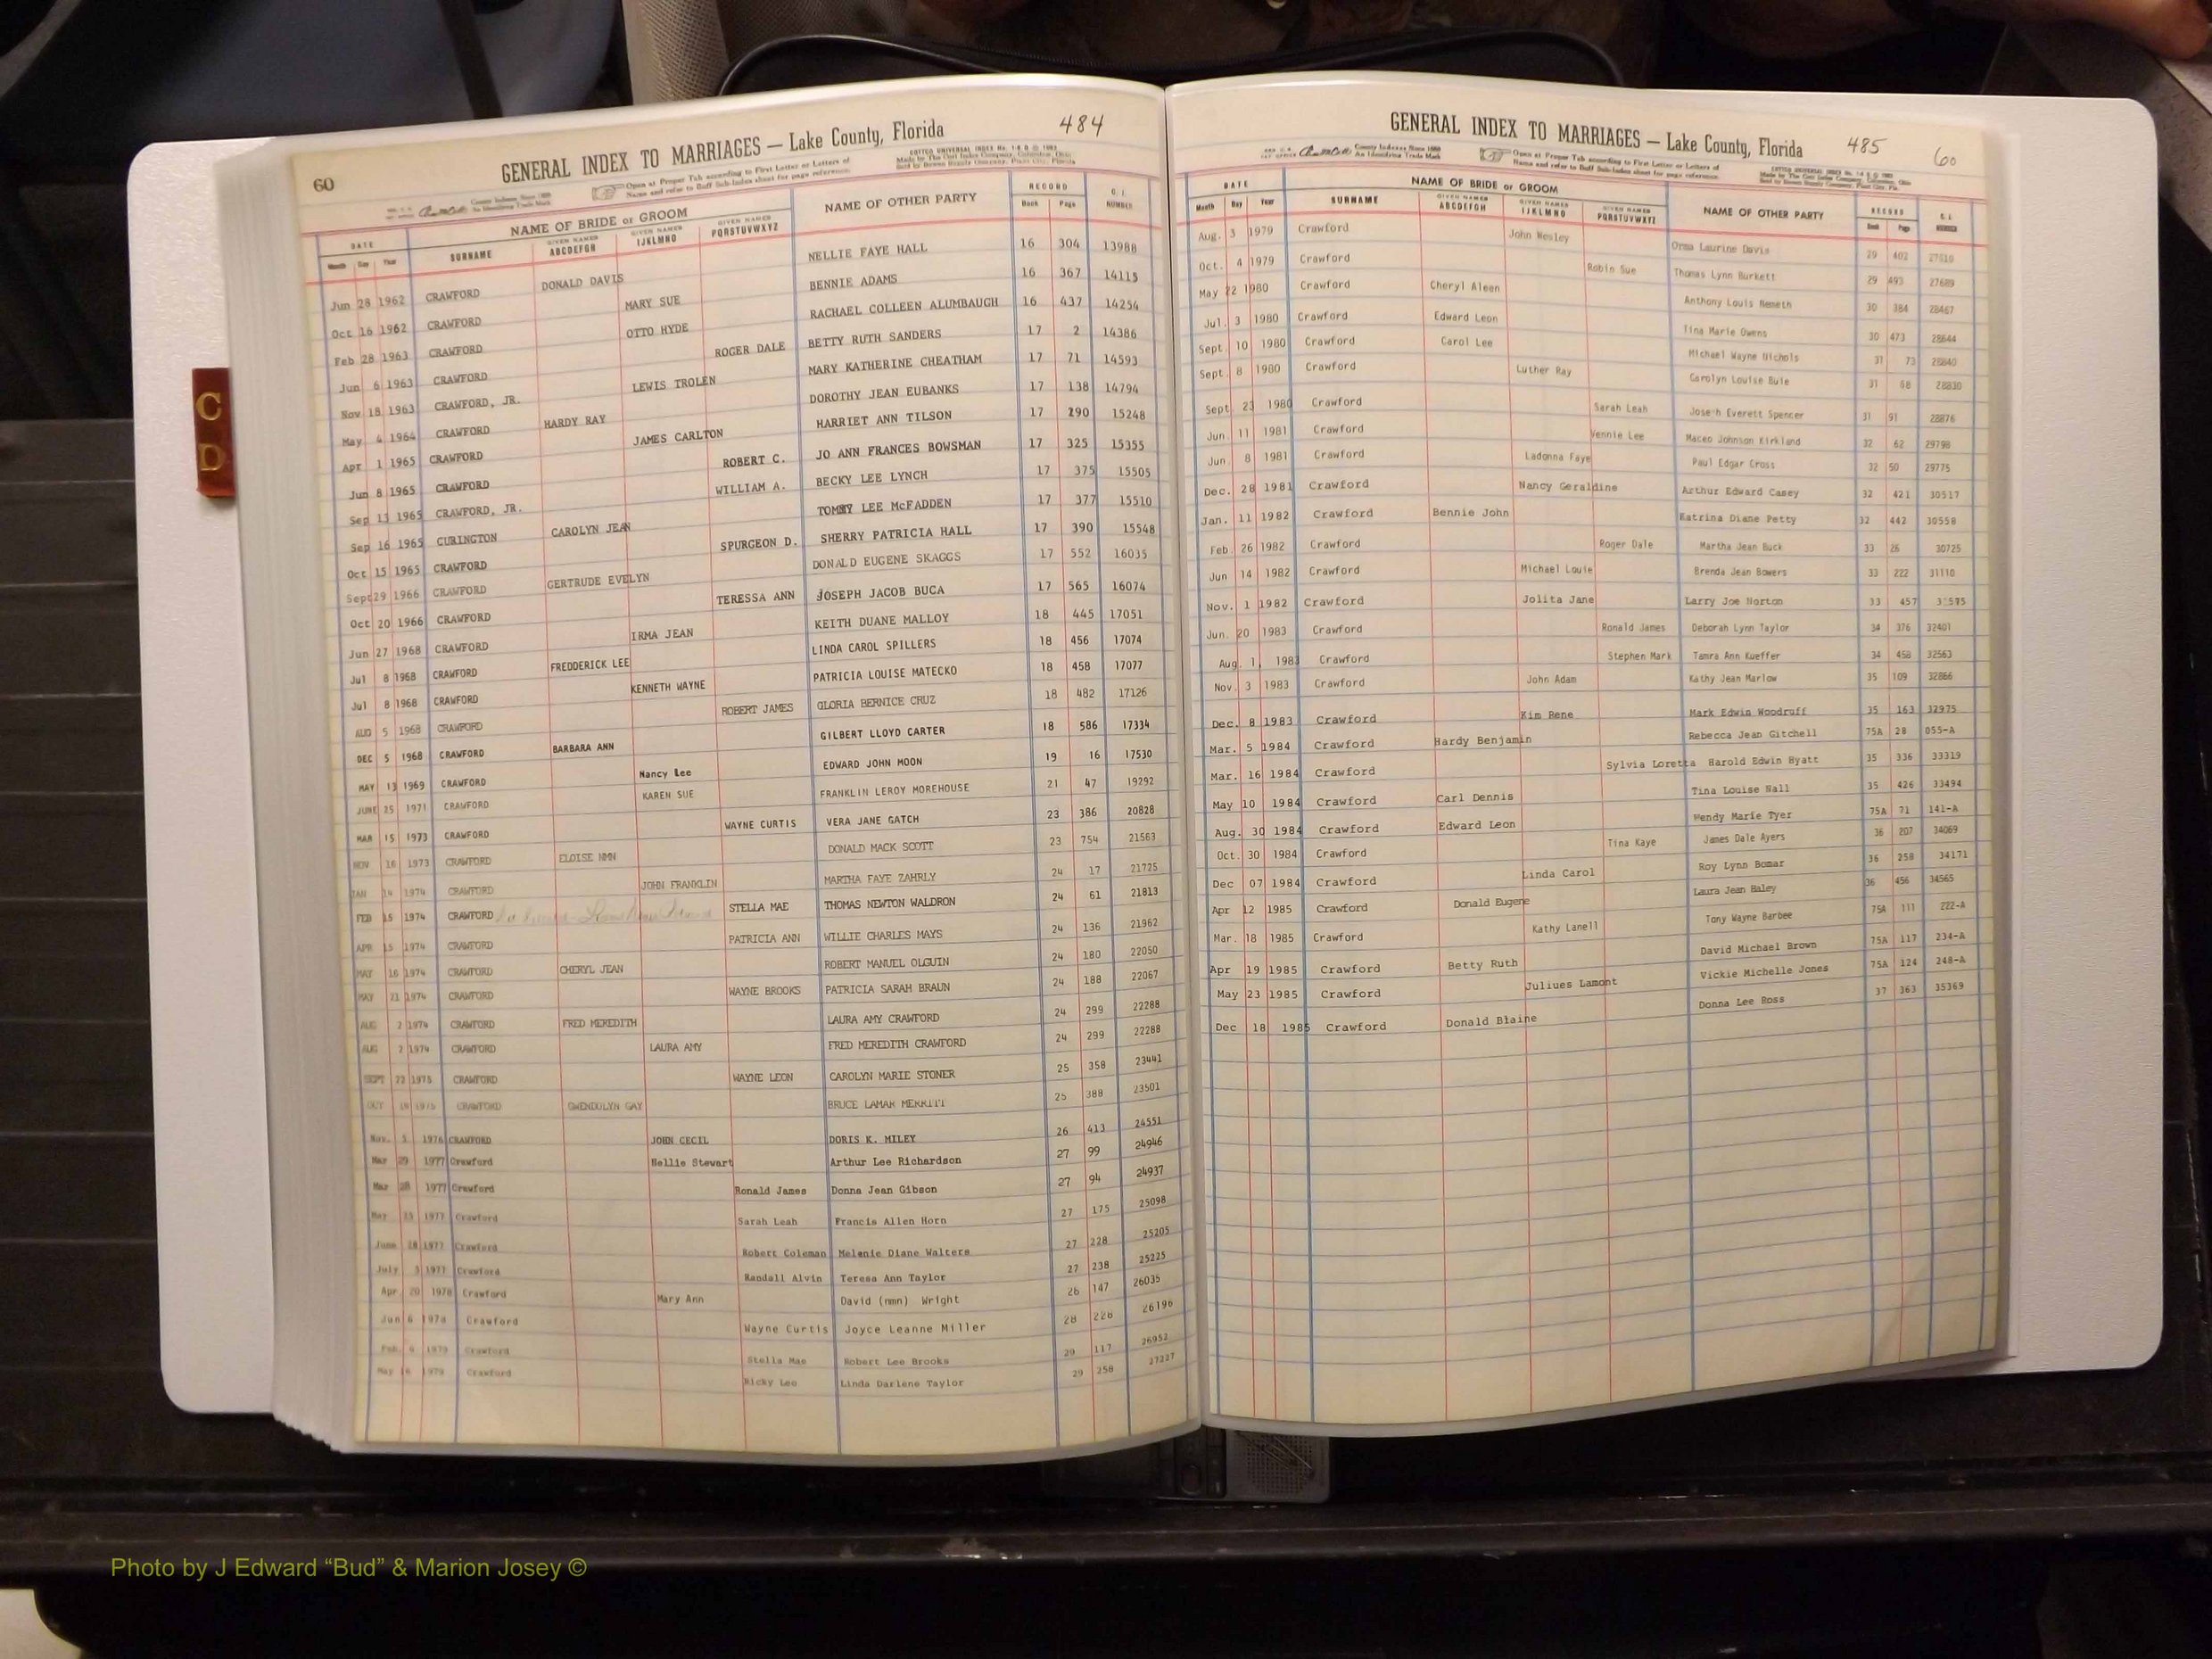 60
GENERAL INDEX TO MARRIAGES — Lake County, Florida 484
County Indexes Since 1888
An Identifying Trade Mark
Open at Proper Tab according to First Letter or Letters of
Name and refer to Buff Sub-Index sheet for page reference.
DATE NAME OF BRIDE or GROOM NAME OF OTHER PARTY RECORD
Month Day Year SURNAME GIVEN NAMES ABCDEFGH GIVEN NAMES IJKLMNO GIVEN NAMES PQRSTUVWXYZ Book Page NUMBER
Jun 28 1962 CRAWFORD DONALD DAVIS NELLIE FAYE HALL 16 304 13988
Oct 16 1962 CRAWFORD MARY SUE BENNIE ADAMS 16 367 14115
Feb 28 1963 CRAWFORD OTTO HYDE RACHAEL COLLEEN ALUMBAUGH 16 437 14254
Jun 6 1963 CRAWFORD ROGER DALE BETTY RUTH SANDERS 17 2 14386
Nov 18 1963 CRAWFORD, JR. LEWIS TROLEN MARY KATHERINE CHEATHAM 17 71 14593
May 4 1964 CRAWFORD HARDY RAY DOROTHY JEAN EUBANKS 17 138 14794
Apr 1 1965 CRAWFORD JAMES CARLTON HARRIET ANN TILSON 17 290 15248
Jun 8 1965 CRAWFORD ROBERT C. JO ANN FRANCES BOWSMAN 17 325 15355
Sep 13 1965 CRAWFORD, JR. WILLIAM A. BECKY LEE LYNCH 17 375 15505
Sep 16 1965 CURINGTON CAROLYN JEAN TOMMY LEE McFADDEN 17 377 15510
Oct 15 1965 CRAWFORD SPURGEON D. SHERRY PATRICIA HALL 17 390 15548
Sept 29 1966 CRAWFORD GERTRUDE EVELYN DONALD EUGENE SKAGGS 17 552 16035
Oct 20 1966 CRAWFORD TERESSA ANN JOSEPH JACOB BUCA 17 565 16074
Jun 27 1968 CRAWFORD IRMA JEAN KEITH DUANE MALLOY 18 445 17051
Jul 8 1968 CRAWFORD FREDDERICK LEE LINDA CAROL SPILLERS 18 456 17074
Jul 8 1968 CRAWFORD KENNETH WAYNE PATRICIA LOUISE MATECKO 18 458 17077
AUG 5 1968 CRAWFORD ROBERT JAMES GLORIA BERNICE CRUZ 18 482 17126
DEC 5 1968 CRAWFORD BARBARA ANN GILBERT LLOYD CARTER 18 586 17334
MAY 13 1969 CRAWFORD Nancy Lee EDWARD JOHN MOON 19 16 17530
JUNE 25 1971 CRAWFORD KAREN SUE FRANKLIN LEROY MOREHOUSE 21 47 19292
MAR 15 1973 CRAWFORD WAYNE CURTIS VERA JANE GATCH 23 386 20828
NOV 16 1973 CRAWFORD ELOISE NMN DONALD MACK SCOTT 23 754 21563
JAN 14 1974 CRAWFORD JOHN FRANKLIN MARTHA FAYE ZAHRLY 24 17 21725
FEB 15 1974 CRAWFORD STELLA MAE THOMAS NEWTON WALDRON 24 61 21813
APR 15 1974 CRAWFORD PATRICIA ANN WILLIE CHARLES MAYS 24 136 21962
MAY 16 1974 CRAWFORD CHERYL JEAN ROBERT MANUEL OLGUIN 24 180 22050
MAY 21 1974 CRAWFORD WAYNE BROOKS PATRICIA SARAH BRAUN 24 188 22067
AUG 2 1974 CRAWFORD FRED MEREDITH LAURA AMY CRAWFORD 24 299 22288
AUG 2 1974 CRAWFORD LAURA AMY FRED MEREDITH CRAWFORD 24 299 22288
SEPT 22 1975 CRAWFORD WAYNE LEON CAROLYN MARIE STONER 25 358 23441
OCT 1975 CRAWFORD GWENDOLYN GAY BRUCE LAMAR MERRITT 25 388 23501
Nov. 3 1976 CRAWFORD JOHN CECIL DORIS K. MILEY 26 413 24551
Mar 29 1977 Crawford Nellie Stewart Arthur Lee Richardson 27 99 24946
Mar 28 1977 Crawford Ronald James Donna Jean Gibson 27 94 24937
May 1977 Crawford Sarah Leah Francis Allen Horn 27 175 25098
June 18 1977 Crawford Robert Coleman Melanie Diane Walters 27 228 25205
July 3 1977 Crawford Randall Alvin Teresa Ann Taylor 27 238 25225
Apr 20 1978 Crawford Mary Ann David (nmn) Wright 26 147 26035
Jun 6 1978 Crawford Wayne Curtis Joyce Leanne Miller 28 228 26196
Feb. 1979 Crawford Stella Mae Robert Lee Brooks 29 117 26952
May 1979 Crawford Ricky Leo Linda Darlene Taylor 29 258 27227
GENERAL INDEX TO MARRIAGES — Lake County, Florida 485 60
County Indexes Since 1888
An Identifying Trade Mark
Open at Proper Tab according to First Letter or Letters of
Name and refer to Buff Sub-Index sheet for page reference.
DATE NAME OF BRIDE or GROOM NAME OF OTHER PARTY RECORD
Month Day Year SURNAME GIVEN NAMES ABCDEFGH GIVEN NAMES IJKLMNO GIVEN NAMES PQRSTUVWXYZ Book Page NUMBER
Aug. 3 1979 Crawford John Wesley Orma Laurine Davis 29 402
Oct. 4 1979 Crawford Robin Sue Thomas Lynn Burkett 29 493 27689
May 22 1980 Crawford Cheryl Aleen Anthony Louis Nemeth 30 384 28467
Jul. 3 1980 Crawford Edward Leon Tina Marie Owens 30 473 28644
Sept. 10 1980 Crawford Carol Lee Michael Wayne Nichols 31 73 28840
Sept. 8 1980 Crawford Luther Ray Carolyn Louise Buie 31 68 28830
Sept 23 1980 Crawford Sarah Leah Joseph Everett Spencer 31 91 28876
Jun. 11 1981 Crawford Vennie Lee Maceo Johnson Kirkland 32 62 29798
Jun 8 1981 Crawford Ladonna Faye Paul Edgar Cross 32 50 29775
Dec. 28 1981 Crawford Nancy Geraldine Arthur Edward Casey 32 421 30517
Jan. 11 1982 Crawford Bennie John Katrina Diane Petty 32 442 30558
Feb. 26 1982 Crawford Roger Dale Martha Jean Buck 33 26 30725
Jun 14 1982 Crawford Michael Louie Brenda Jean Bowers 33 222 31110
Nov. 1 1982 Crawford Jolita Jane Larry Joe Norton 33 457
Jun. 20 1983 Crawford Ronald James Deborah Lynn Taylor 34 376 32401
Aug. 1, 1983 Crawford Stephen Mark Tamra Ann Kueffer 34 458 32563
Nov. 3 1983 Crawford John Adam Kathy Jean Marlow 35 109 32866
Dec. 8 1983 Crawford Kim Rene Mark Edwin Woodruff 35 163 32975
Mar. 5 1984 Crawford Hardy Benjamin Rebecca Jean Gitchell 75A 28 055-A
Mar. 16 1984 Crawford Sylvia Loretta Harold Edwin Hyatt 35 336 33319
May 10 1984 Crawford Carl Dennis Tina Louise Hall 35 426 33494
Aug. 30 1984 Crawford Edward Leon Wendy Marie Tyer 75A 71 141-A
Oct. 30 1984 Crawford Tina Kaye James Dale Ayers 36 207 34069
Dec 07 1984 Crawford Linda Carol Roy Lynn Bomar 36 258 34171
Apr 12 1985 Crawford Donald Eugene Laura Jean Haley 36 456 34565
Mar. 18 1985 Crawford Kathy Lanell Tony Wayne Barbee 75A 111 222-A
Apr 19 1985 Crawford Betty Ruth David Michael Brown 75A 117 234-A
May 23 1985 Crawford Juliues Lamont Vickie Michelle Jones 75A 124 248-A
Dec 18 1985 Crawford Donald Blaine Donna Lee Ross 37 363 35369
C
D
Photo by J Edward “Bud” & Marion Josey ©